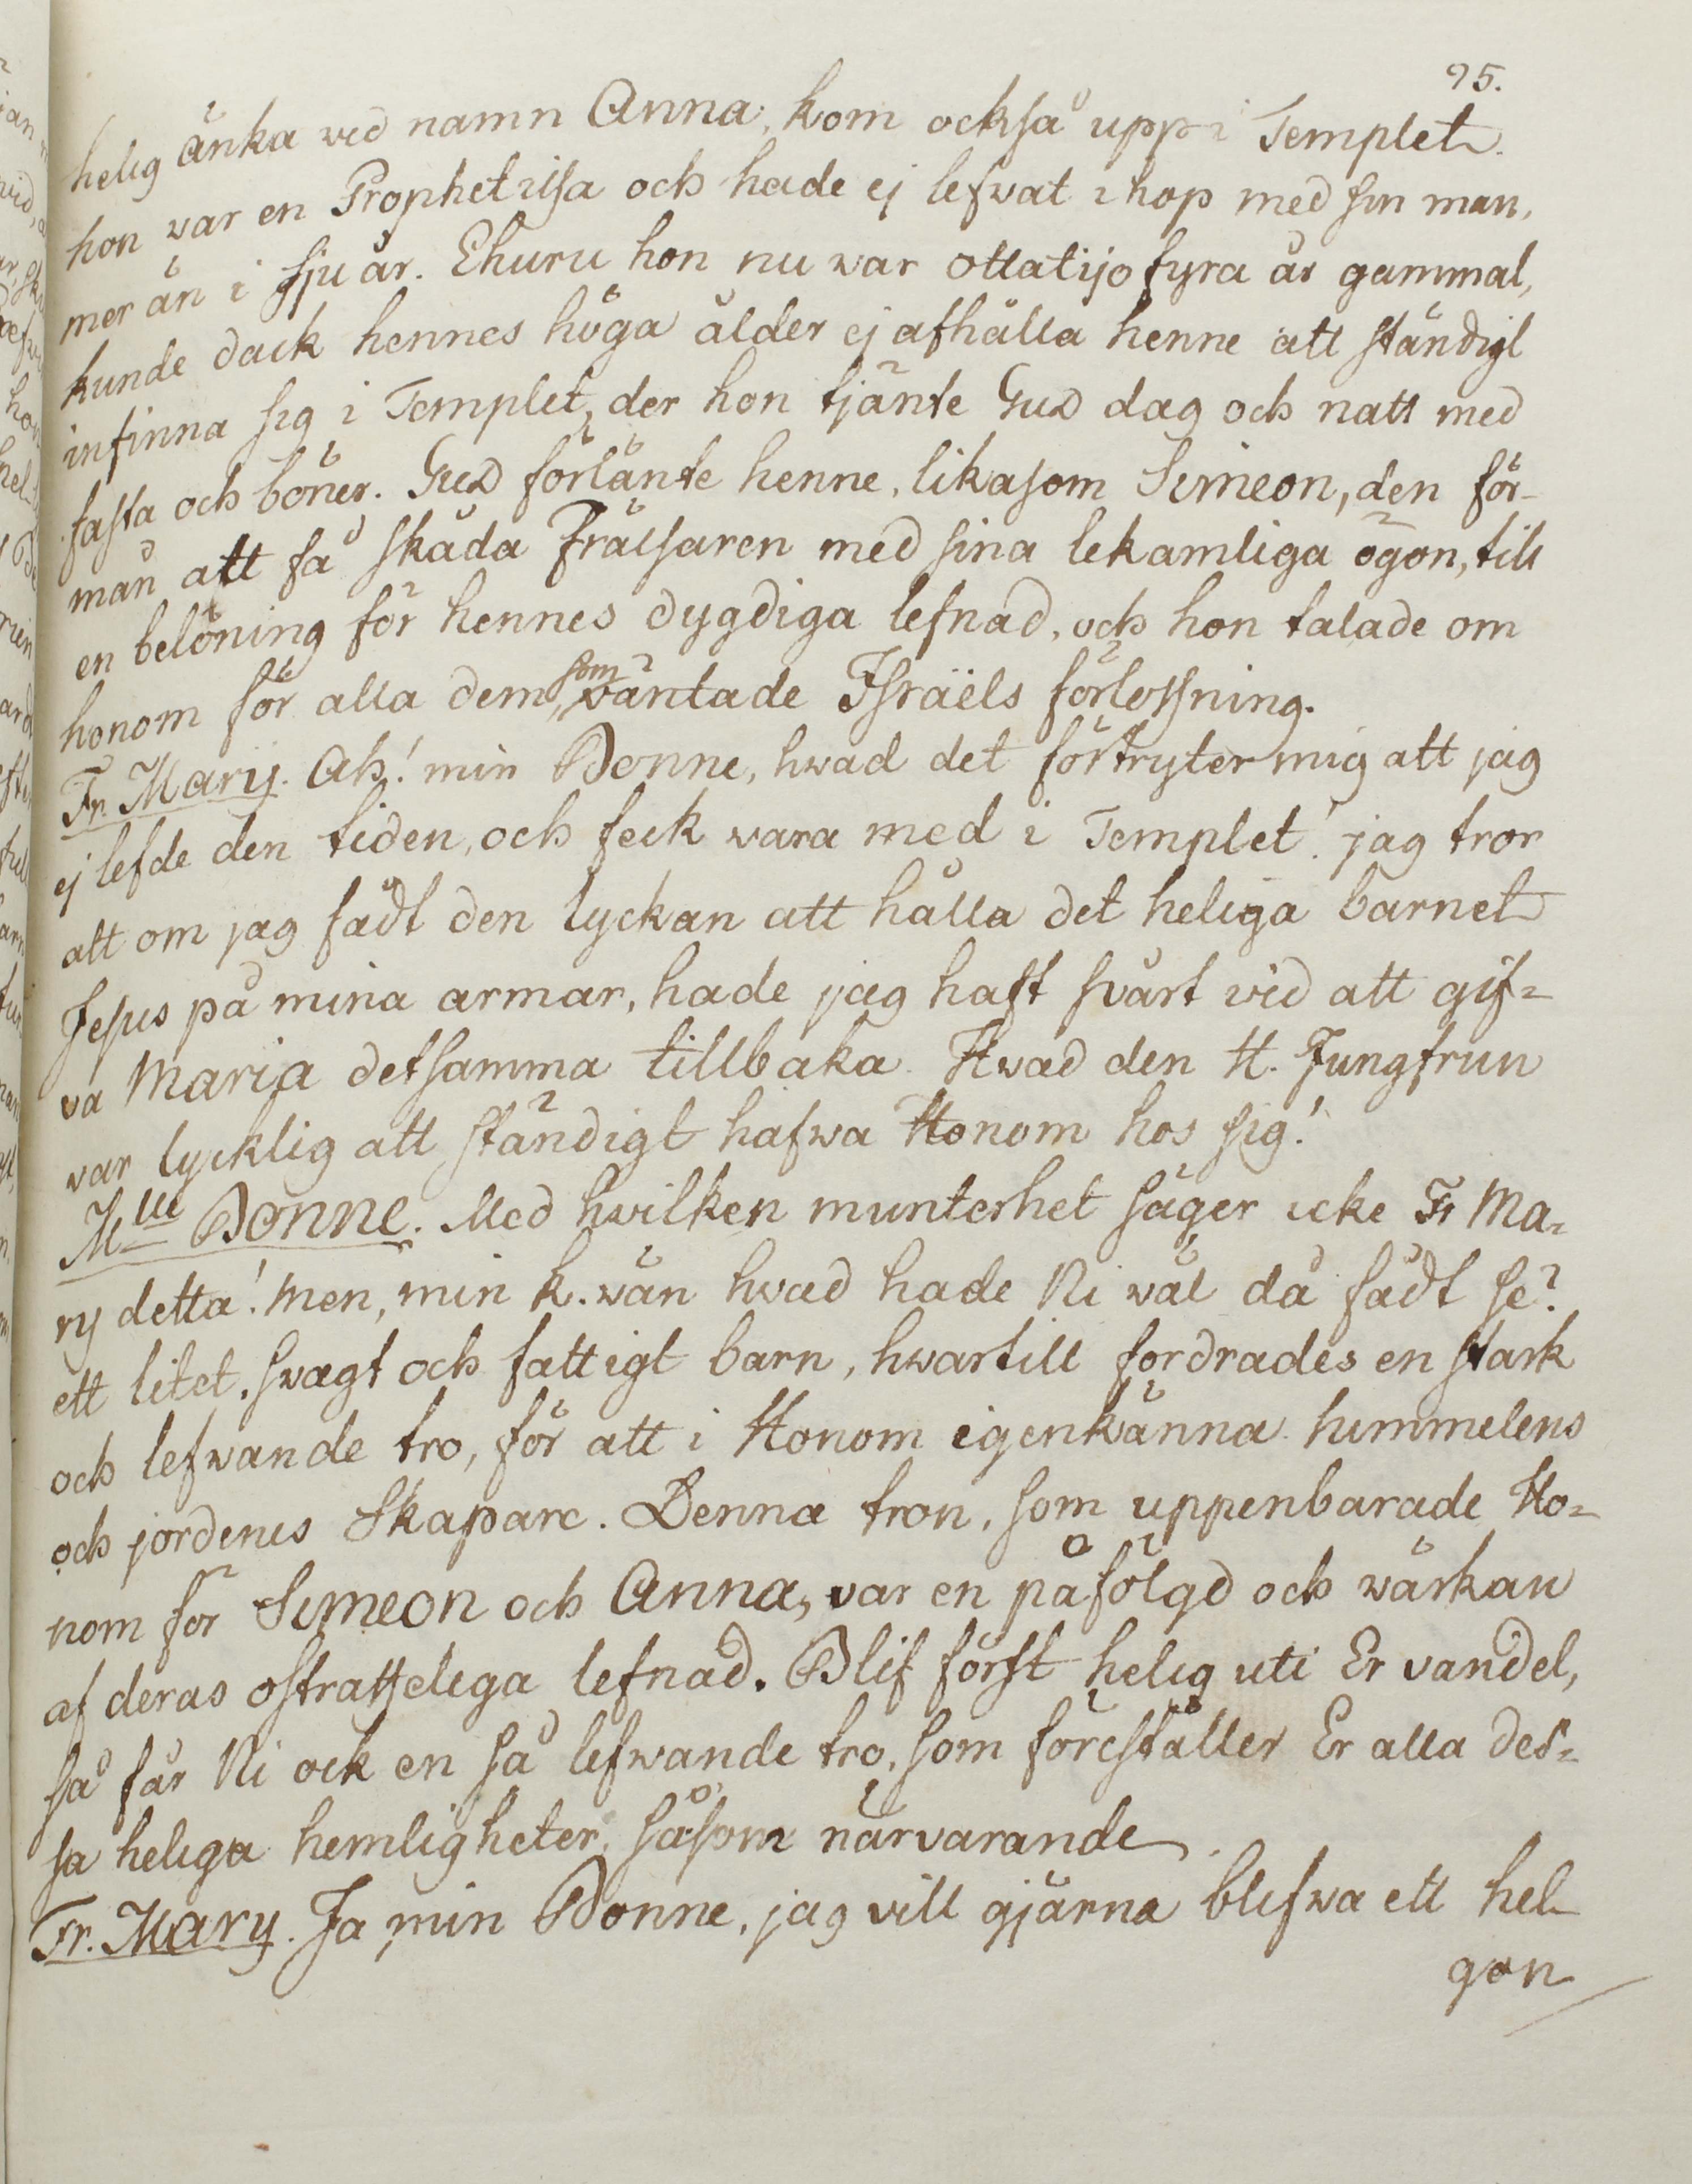 95.
helig änka vid namn Anna, kom också upp i Templet.
hon var en Prophetissa och hade ej lefvat ihop med sin man,
mer än i sju år. Ehuru hon nu war ottatijo fyra år gammal,
kunde dock hennes höga ålder ej afhålla henne att ständigt
infinna sig i Templet, der hon tjänte Gud dag och natt med
fasta och böner. Gud förlänte henne, likasom Simeon, den för-
mån att få skåda Frälsaren med sina lekamliga ögon, till
en belöning för hennes dygdiga lefnad, och hon talade om
honom för alla dem, som wäntade Israëls förlossning.
Fr. Mary. Ah! min Bonne, hwad det förtryter mig att jag
ej lefde den tiden, och feck wara med i Templet! jag tror
att om jag fådt den lyckan att hålla det heliga barnet
Jesus på mina armar, hade jag haft svårt vid att gif=
va Maria detsamma tillbaka. Hwad den H. Jungfrun
war lycklig att ständigt hafwa Honom hos sig!
Mlle Bonne. Med hvilken munterhet säger icke Fr Ma=
ry detta! men, min k. wän hvad hade Ni wäl då fådt se?
ett litet, svagt och fattigt barn, hwartill fordrades en stark
och lefwande tro, för att i Honom igenkänna himmelens
och jordenes Skapare. Denna tron, som uppenbarade Ho=
nom för Simeon och Anna, var en påfölgd och wärkan
af deras ostraffeliga lefnad. Blif först helig uti Er vandel,
så får Ni ock en så lefwande tro, som föreställer Er alla des=
sa heliga hemligheter, såsom närvarande.
Fr. Mary. Ja min Bonne, jag vill gjärna blifwa ett hel-
gon